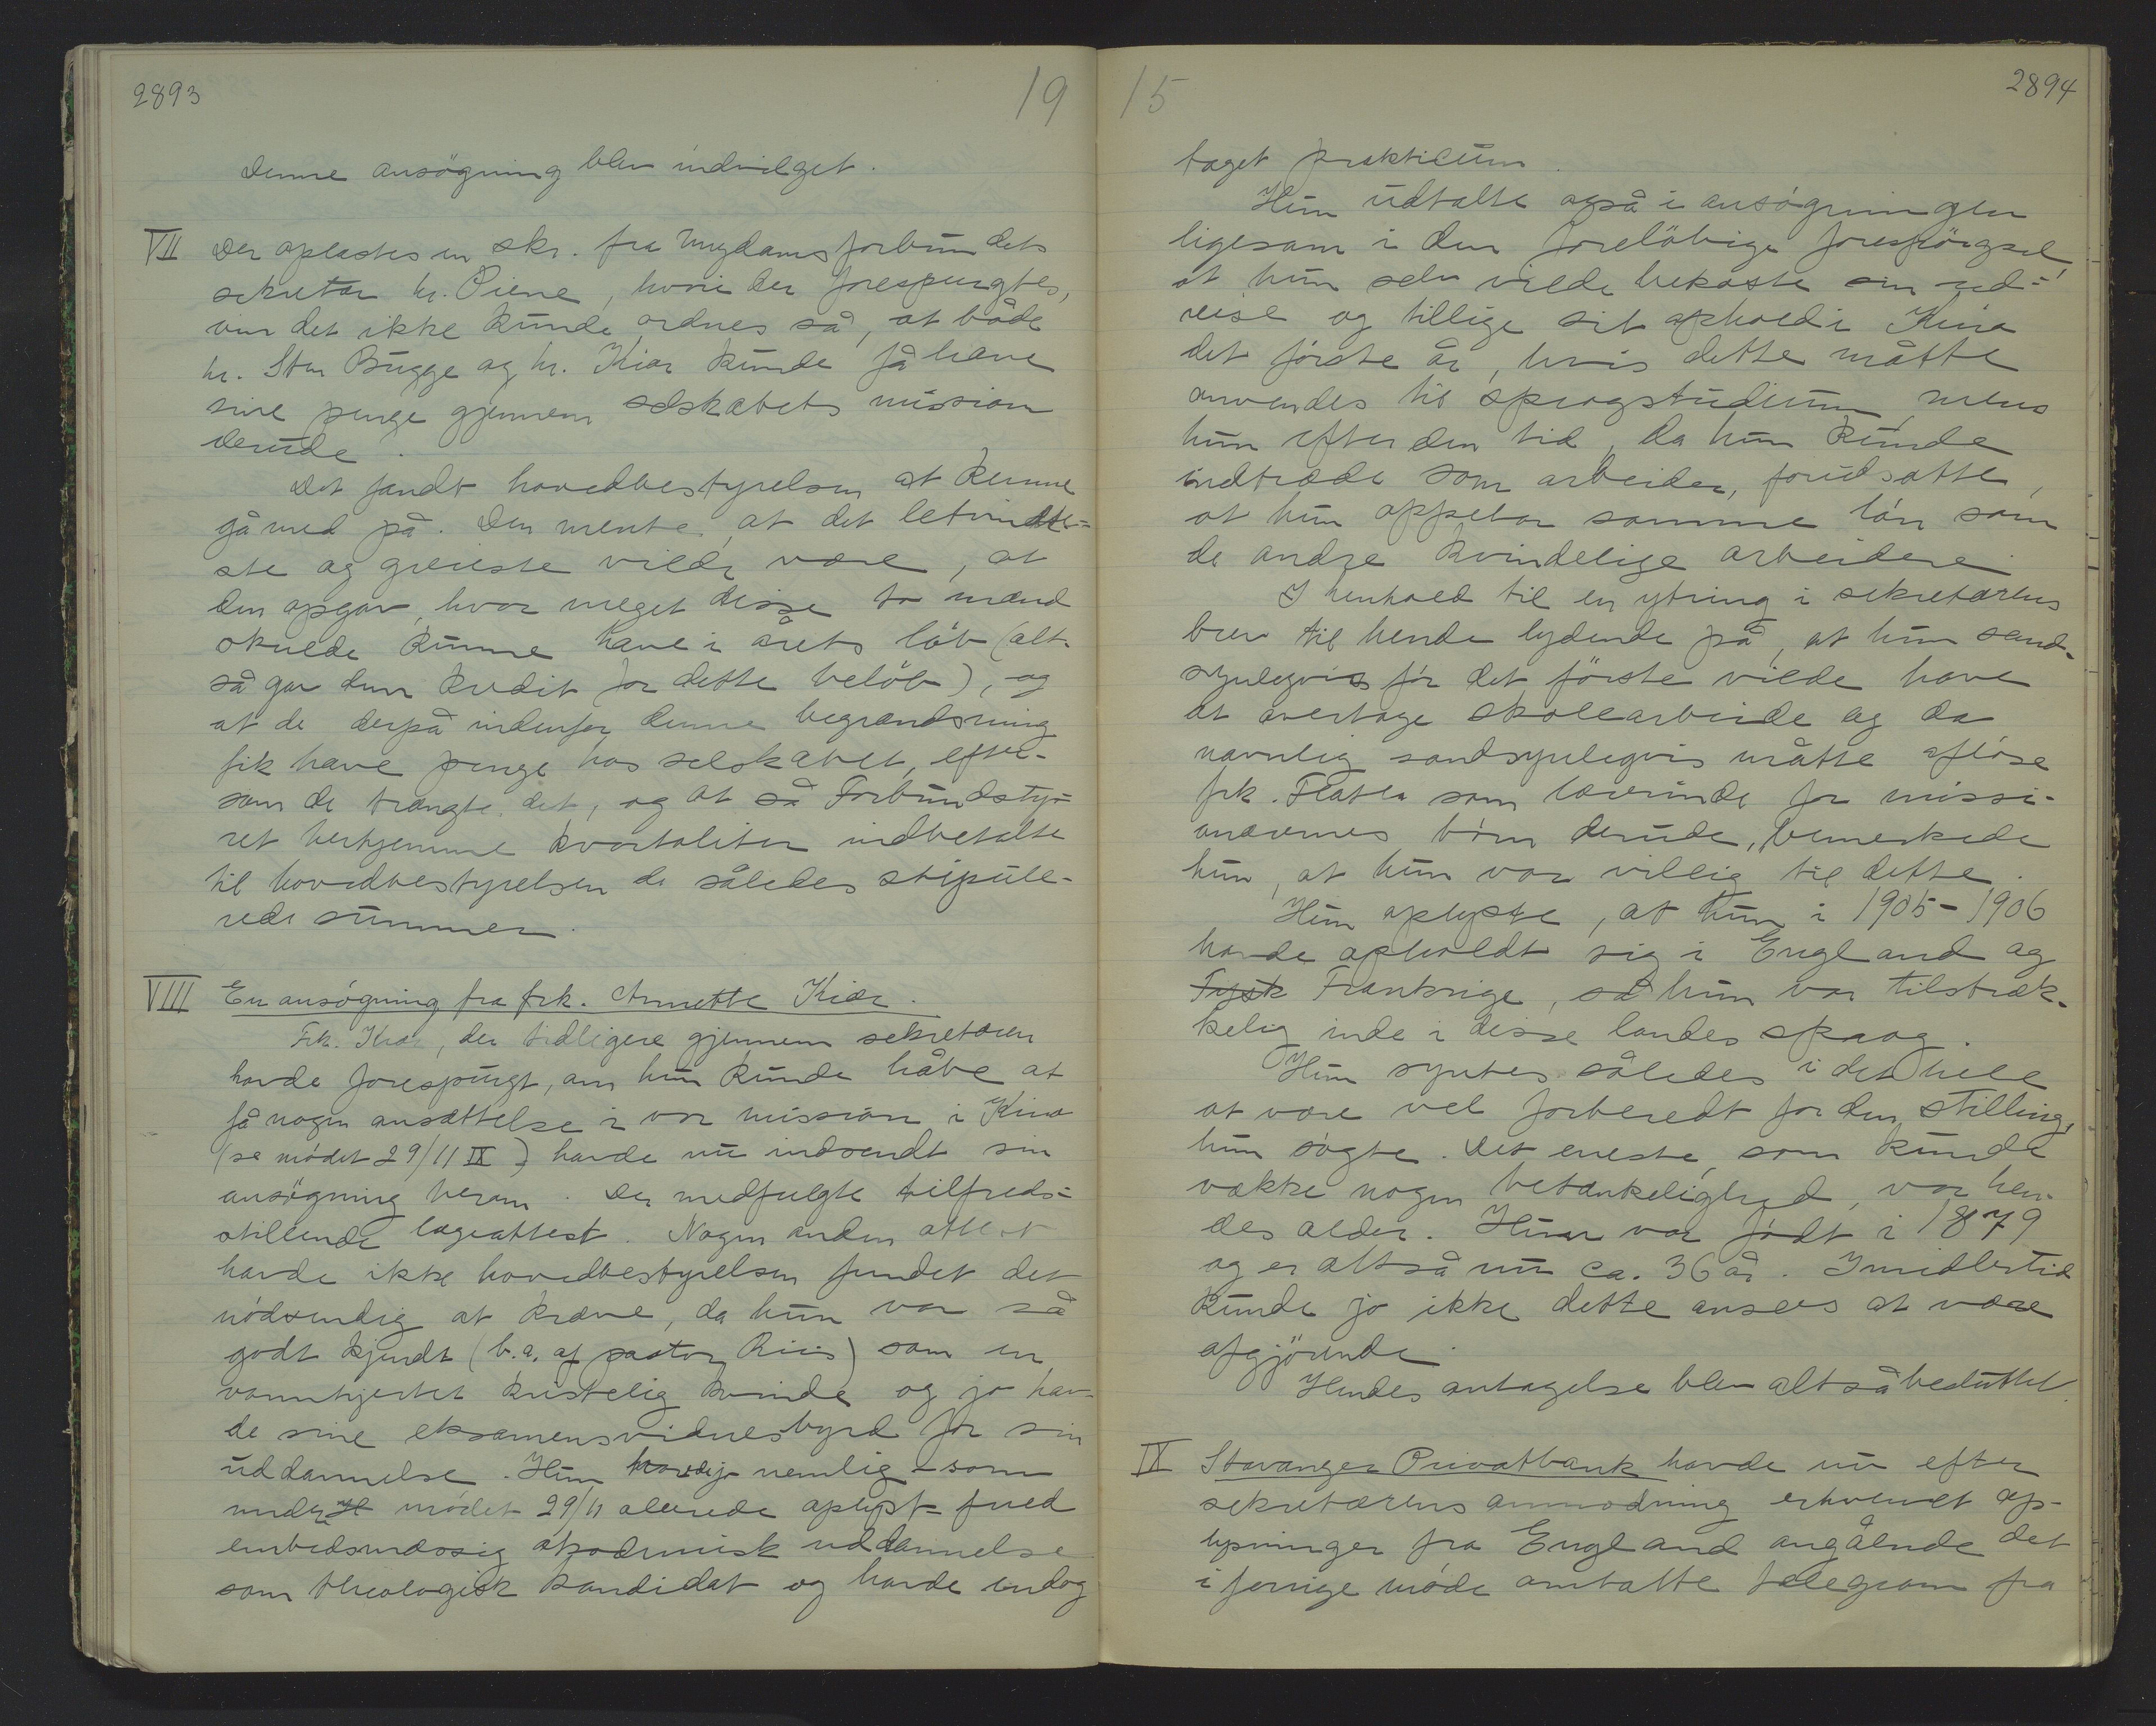 2893
19
Denne ansögning blev indvilget.
VII Der oplæstes en skr. fra Ungdomsforbundets
sekretær hr. Piene, hvori der forespurgtes,
om det ikke kunde ordnes så, at både
hr. Sten Bugge og hr. Kiær kunde få have
sine penge gjennem selskabets mission
derude.
Det fandt hovedbestyrelsen at kunne
gå med på. Den mente, at det letvindte-
ste og greieste vilde være, at
den opgav, hvor meget disse to mænd
skulde kunne have i årets löb (alt-
så gav dem kredit for dette belöb), og
at de derpå indenfor denne begrændsning
fik have penge hos selskabet, efter-
som de trængte det, og at så Forbundsty-
ret herhjemme kvartaliter indbetalte
til hovedbestyrelsen de således stipule-
rede summer.
VIII En ansögning fra frk. Annette Kiær.
Frk. Kiær, der tidligere gjennem sekretæren
havde forespurgt, om hun kunde håbe at
få nogen ansættelse i vor mission i Kina
(se mödet 29/11 IX) havde nu indsendt sin
ansögning herom. Der medfulgte tilfreds-
stillende lægeattest. Nogen anden attest
havde ikke hovedbestyrelsen fundet det
nödvendig at kræve, da hun var så
godt kjendt (b.a. af pastor Riis) som en
varmhjertet kristelig kvinde og jo hav-
de sine eksamensvidnesbyrd for sin
uddannelse. Hun havde jo nemlig - som
under mödet 29/11 allerede oplyst - fuld
embedsmæssig akademisk uddannelse
som theologisk kandidat og havde endog
15
2894
taget praktikum.
Hun udtalte også i ansögningen
ligesom i den forelöbige forespörgsel,
at hun selv vilde bekoste sin ud-
reise og tillige sit ophold i Kina
det förste år, hvis dette måtte
anvendes til sprogstudium, mens
hun efter den tid, da hun kunde
indtræde som arbeider, forudsatte,
at hun oppebar samme lön som
de andre kvindelige arbeidere.
I henhold til en ytring i sekretærens
brev til hende lydende på, at hun sand-
synlegvis for det förste vilde have
at overtage skolearbeide og da
navnlig sandsynlegvis måtte aflöse
frk. Flatla som lærerinde for missi-
onærernes börn derude, bemerkede
hun, at hun var villig til dette.
Hun oplyste, at hun i 1905-1906
havde opholdt sig i England og
Tysk Frankrige, så hun var tilstræk-
kelig inde i disse landes sprog.
Hun syntes således i det hele
at være vel forberedt for den stilling,
hun sögte. Det eneste, som kunde
vække nogen betænkelighed, var hen-
des alder. Hun var födt i 1879
og er altså nu ca. 36 år. Imidlertid
kunde jo ikke dette ansees at være
afgjörende.
Hendes antagelse blev altså besluttet.
IX Stavanger Privatbank havde nu efter
sekretærens anmodning erhvervet op-
lysninger fra England angående det
i forrige möde omtalte telegram fra